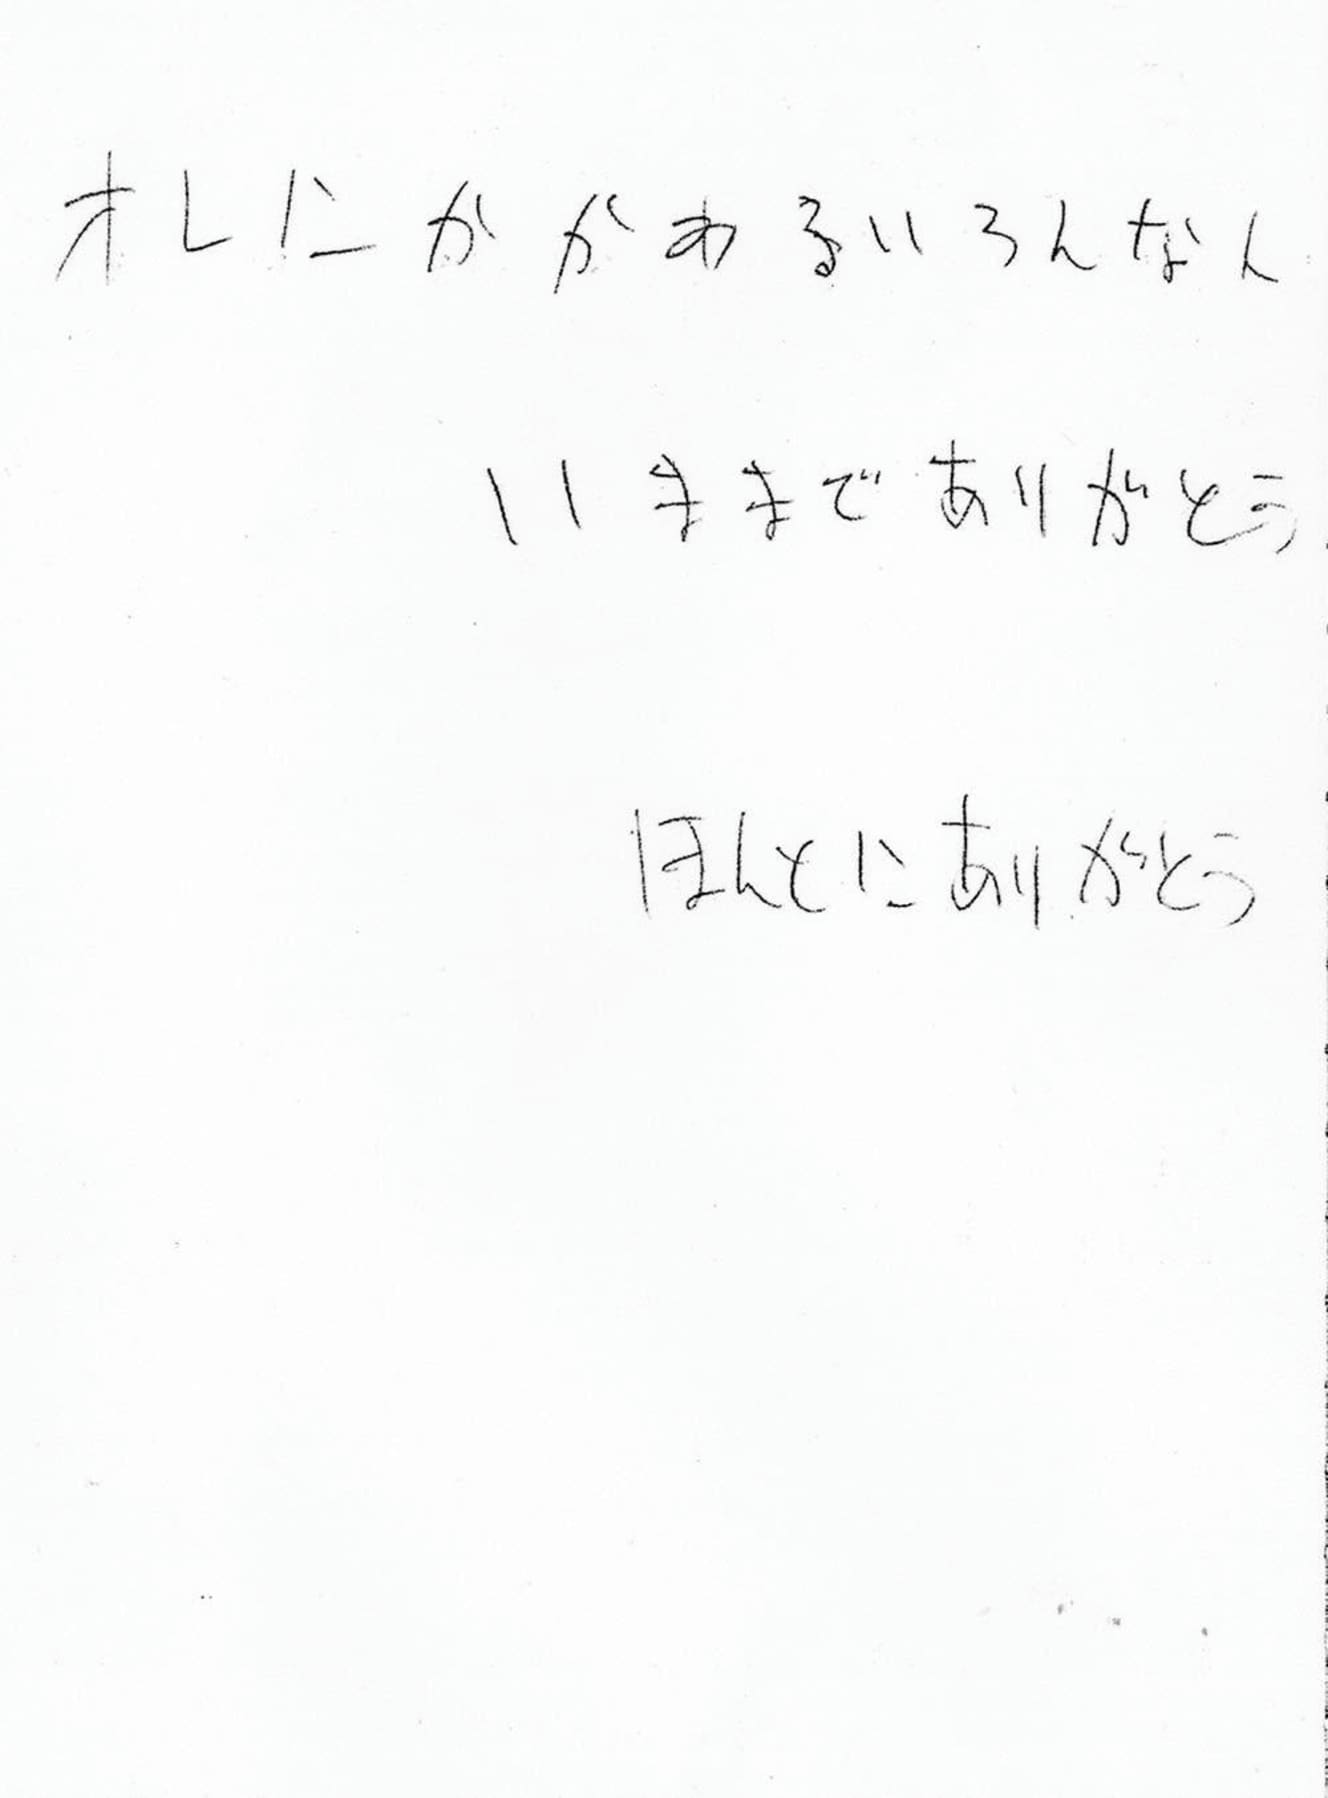 オレにかがわるいろんなん
いままでありがとう
ほんとにありがとう